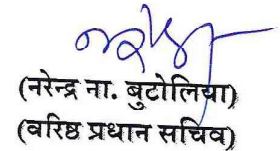 (नरेन्द्र ना. बुटोलिया)
(वरिष्ठ प्रधान सचिव)